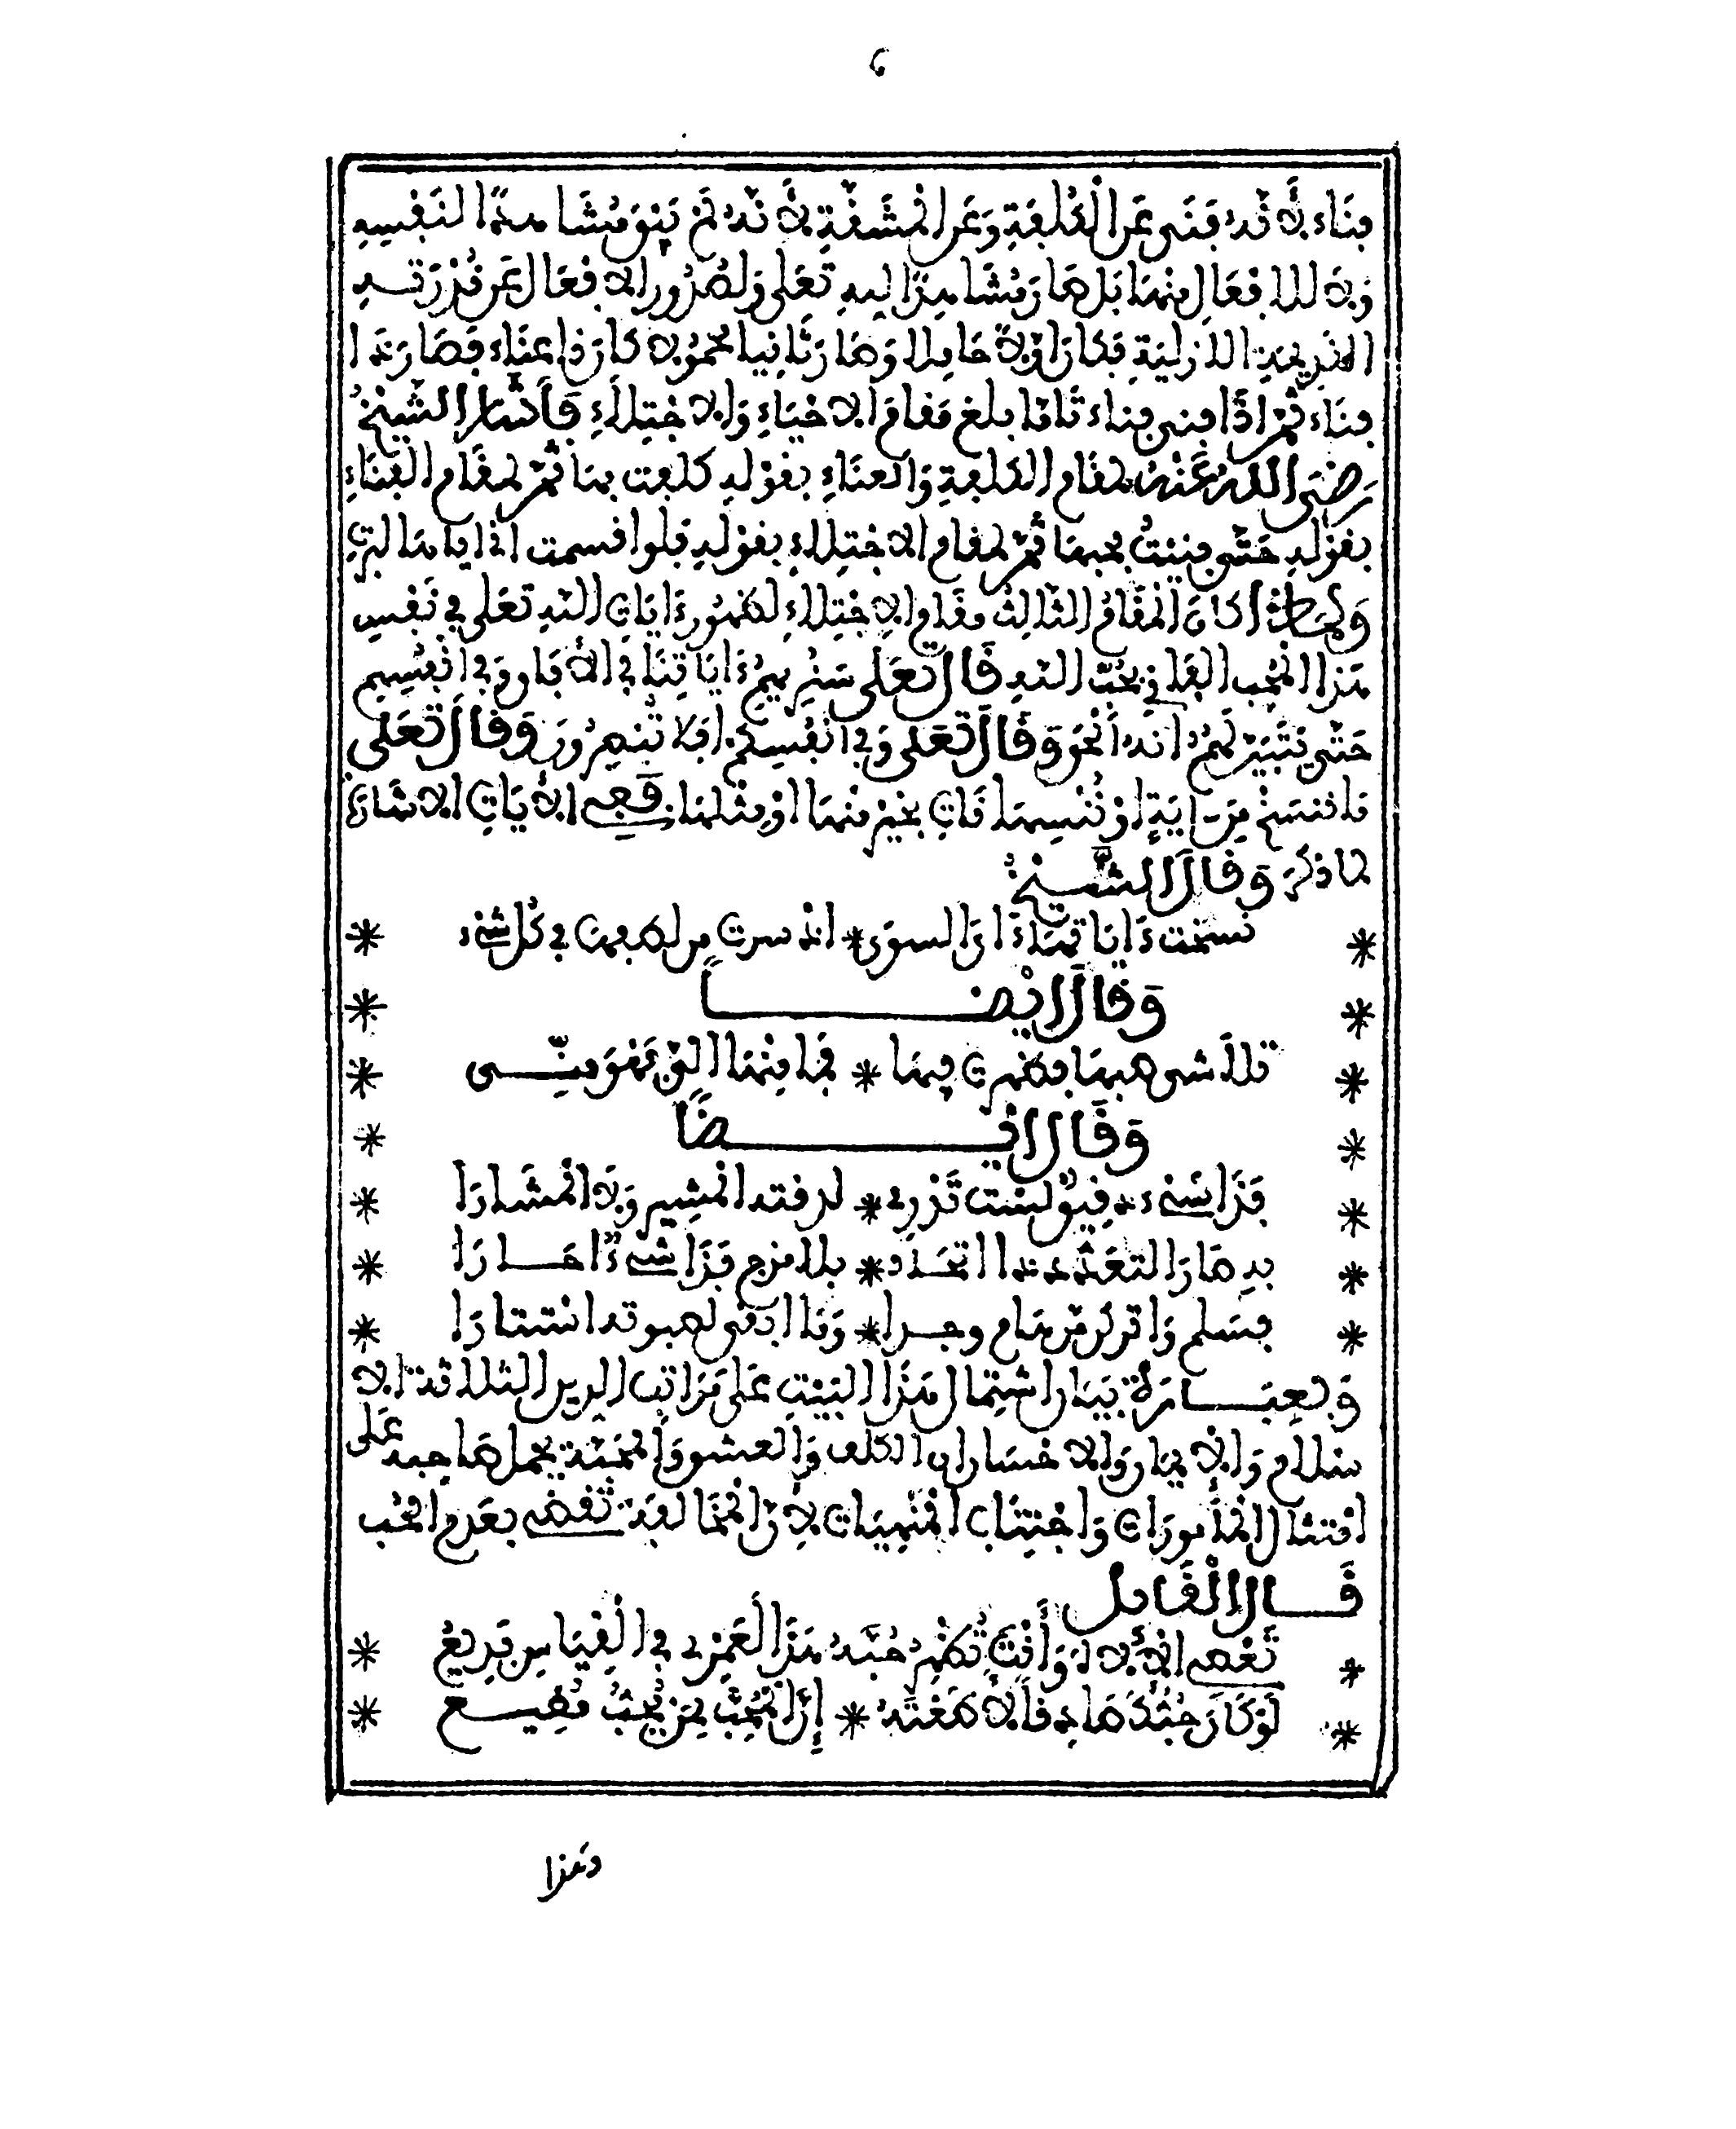 ٦
فناء لأنه فنى عن الكلفة وعن المشقة لأنه لم يبق مشاهدا لنفسه
ولا للأفعال منها بل صار مشاهدا ليد تعلى ولصدور الأفعال عن قدرته
القديمة الأزلية فكان أولا حاملا وصار ثانيا محمولا كان ذا عناء فصار ذا
فناء ثم إذا فنى فناء تاما بلغ مقام الاحياء والاجتلاء فأشار الشيخ
رضى الله عنه لمقام الكلفة والعناء بقوله كلفت بنا ثم لمقام الفناء
بقوله حتى فنيت بحبها ثم لمقام الاجتلاء بقوله فلو أقسمت أنى إياها لبرت
ولما كان المقام الثالث مقام الاجتلاء لظهور ءايات الله تعلى في نفس
هذا المحب الفاني بحب الله قال تعلى سنريهم ءاياتنا في الأفاق وفي أنفسهم
حتى يتبين لهم أنه الحق وقال تعلى وفي أنفسكم أفلا تبصرون وقال تعلى
ما ننسخ من ءاية أو ننسها نات بخير منها أو مثلها ففي الأيات الإشارة
لما ذكر وقال الشيخ
* نسخت ءاياتها ءاي السوى * إذ سرت من لطفها في كل شيء *
* وقال أيضا *
* تلاشى بها فظهرت فيها * فما منها إلي نعم ومني *
* وقال أيضا *
* فذا شيء دقيق لست تدرى * لدقته المشير ولا المشارا *
* به صار التعدد ذا اتحاد * بلا مزج فذا شيء أحارا *
* فسلم واتركن من هام وجدا * وما أبقى لصبوته استتارا *
وبعبارة بيان اشتمال هذا البيت على مراتب الدين الثلاثة الا
سلام والايمان والاحسان ان الكلف والعشق والمحبة يحمل صاحبه على
امتثال المأمورات واجتناب المنهيات لأن المخالفة تقضى بعدم الحب
قال القائل
* تعصى الإله وأنت تظهر حبه هذا لعمرى في القياس بديع *
* لو كان حبك صادقا لأطعته * إن المحب لمن يحب مطيع *
وهذا